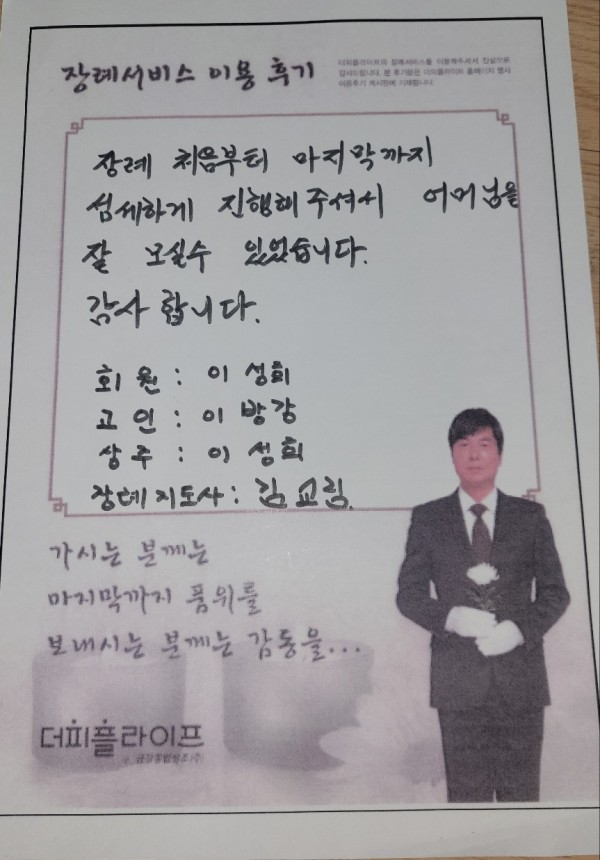 장례서비스 이용 후기
더피플라이프의 장례서비스를 이용해주셔서 진심으로
감사드립니다. 본 후기글은 더피플라이프 홈페이지 행사
이용후기 게시판에 기재됩니다.
장례 처음부터 마지막까지
섬세하게 진행해주셔서 어머님을
잘 모실수 있었습니다.
감사합니다.
회 원 : 이 성희
고 인 : 이 방강
상 주 : 이 성희
장례지도사 : 김교림
가시는 분께는
마지막까지 품위를
보내시는 분께는 감동을...
더피플라이프
금강종합상조(주)